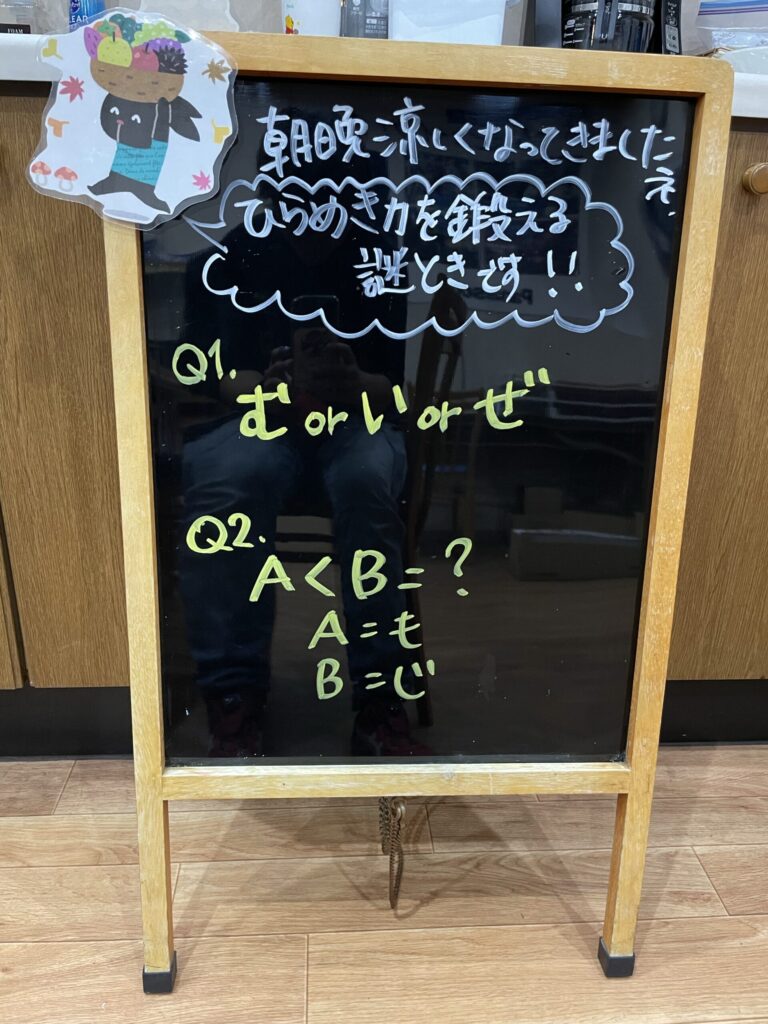 朝晩涼しくなってきましたネ。
ひらめき力を鍛える
謎ときです!!
Q1.
む or い or ぜ
Q2.
A < B = ?
A = も
B = じ